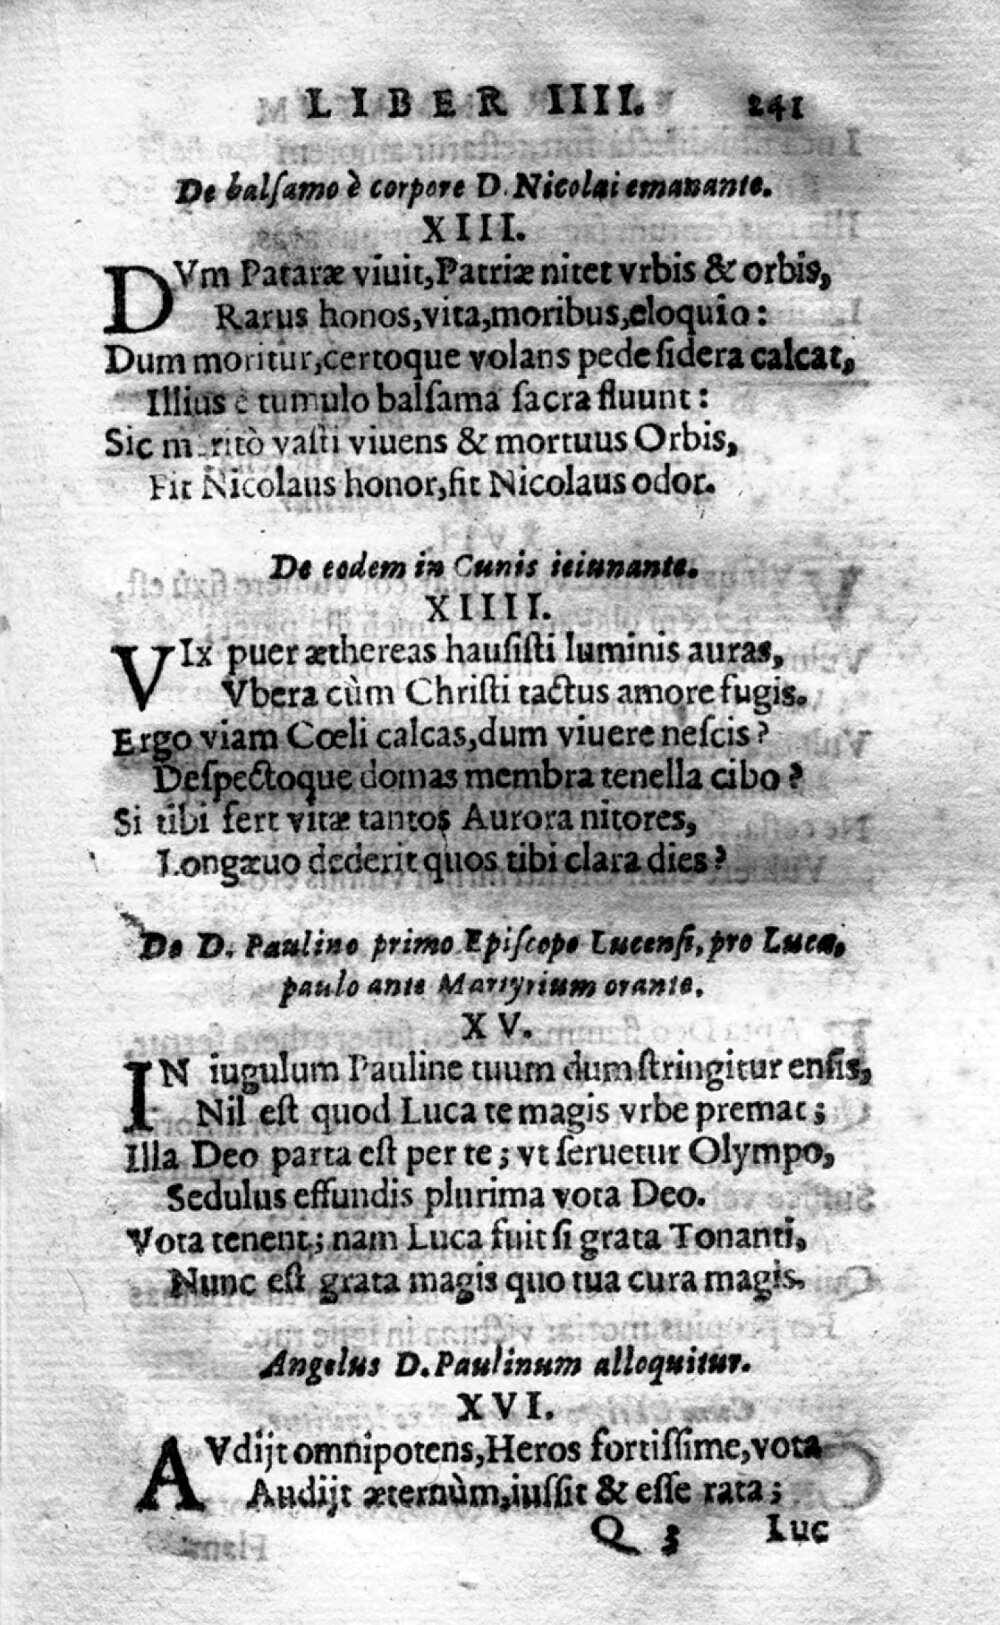 LIBER IIII. 241
De balſamo è corpore D. Nicolai emanante.
XIII.
DVm Pataræ viuit, Patriæ nitet vrbis & orbis,
Rarus honos, vita, moribus, eloquio:
Dum moritur, certoque volans pede ſidera calcat,
Illius è tumulo balſama ſacra fluunt:
Sic meritò vaſti viuens & mortuus Orbis,
Fit Nicolaus honor, fit Nicolaus odor.
De eodem in Cunis ieiunante.
XIIII.
VIx puer æthereas hauſiſti luminis auras,
Vbera cùm Chriſti tactus amore fugis.
Ergo viam Cœli calcas, dum viuere neſcis?
Deſpectoque domas membra tenella cibo?
Si tibi fert vitæ tantos Aurora nitores,
Longæuo dederit quos tibi clara dies?
De D. Paulino primo Epiſcopo Lucenſi, pro Luca,
paulo ante Martyrium orante.
XV.
IN iugulum Pauline tuum dum ſtringitur enſis,
Nil eſt quod Luca te magis vrbe premat;
Illa Deo parta eſt per te; vt ſeruetur Olympo,
Sedulus effundis plurima vota Deo.
Vota tenent; nam Luca fuit ſi grata Tonanti,
Nunc eſt grata magis quo tua cura magis.
Angelus D. Paulinum alloquitur.
XVI.
AVdijt omnipotens, Heros fortiſſime, vota
Audijt æternùm, iuſſit & eſſe rata;
Q 3 Luc